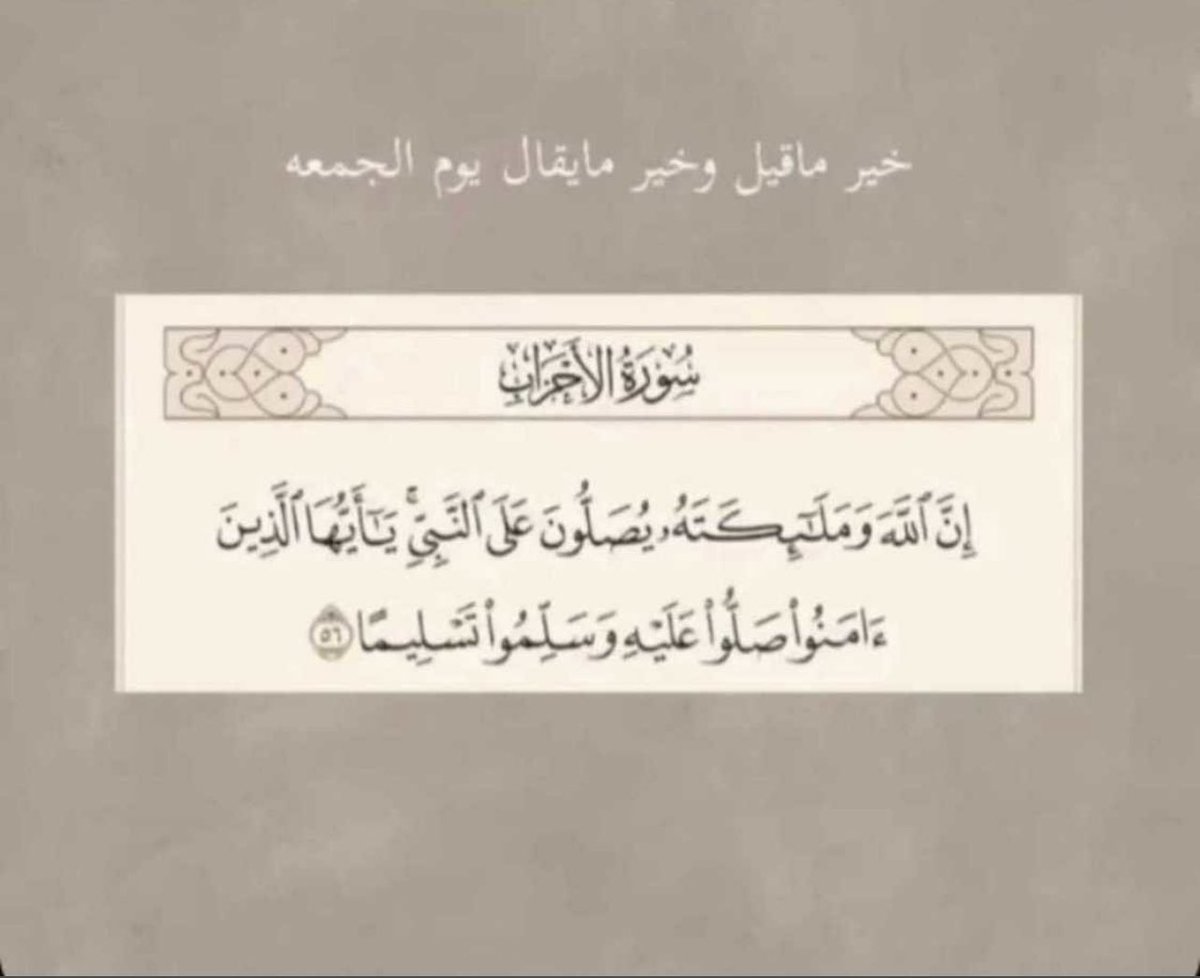 خير ماقيل وخير مايقال يوم الجمعه
سُورَةُ الأَحْزَابِ
إِنَّ ٱللَّهَ وَمَلَٰٓئِكَتَهُۥ يُصَلُّونَ عَلَى ٱلنَّبِيِّۚ يَٰٓأَيُّهَا ٱلَّذِينَ
ءَامَنُوا۟ صَلُّوا۟ عَلَيْهِ وَسَلِّمُوا۟ تَسْلِيمًا ٥٦